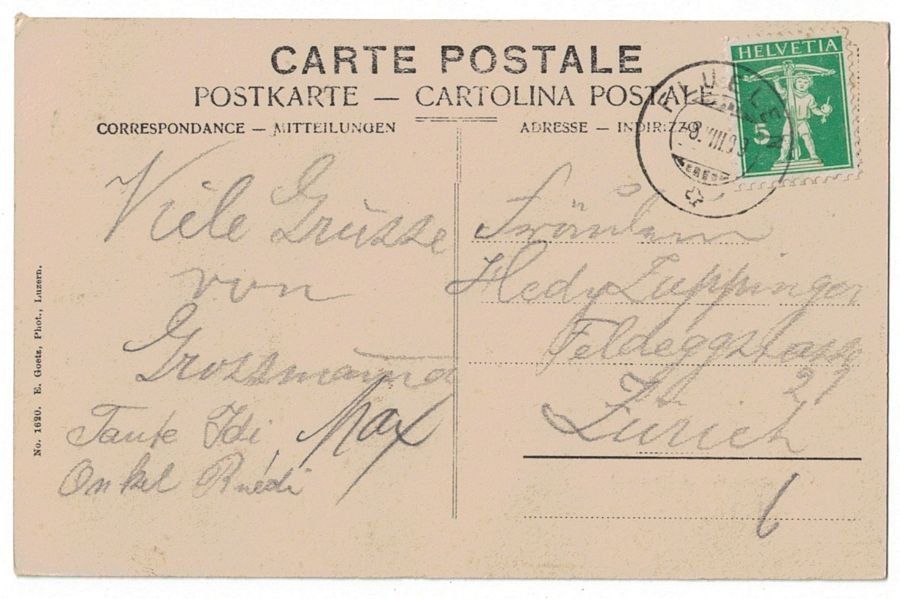 CARTE POSTALE
POSTKARTE — CARTOLINA POSTALE
CORRESPONDANCE – MITTEILUNGEN
ADRESSE – INDIRIZZO
HELVETIA
5
FLUELEN
Viele Grüsse
von
Grossmama
Tante Idi, Max
Onkel Ruedi
Fräulein
Hedy Zuppinger
Feldeggstrasse
29
Zürich
No. 1620. E. Goetz, Phot., Luzern.